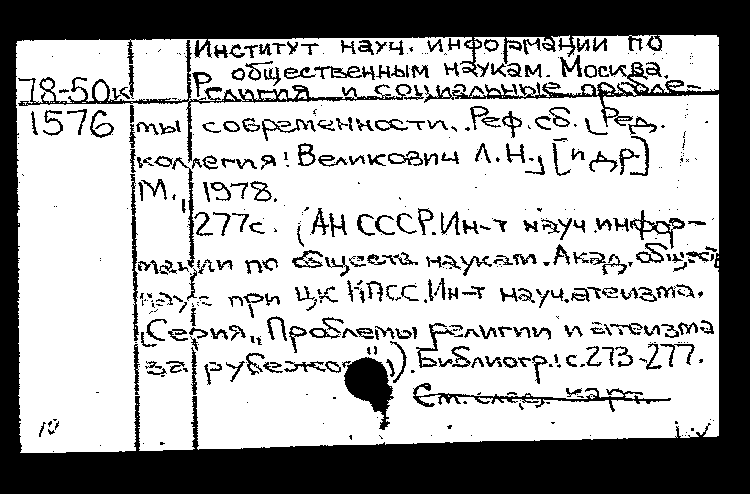 Институт науч. информации по
общественным наукам. Москва.
78-50к Религия и социальные пробле-
1576 мы современности. Реф. сб. [Ред.
коллегия: Великович Л.Н., [и др.]
М., 1978.
277с. (АН СССР. Ин-т науч. инфор-
мации по обществ. наукам. Акад. обществ.
наук при ЦК КПСС. Ин-т науч. атеизма.
Серия „Проблемы религии и атеизма
за рубежом"). Библиогр.: с. 273-277.
См. след. карт.
10